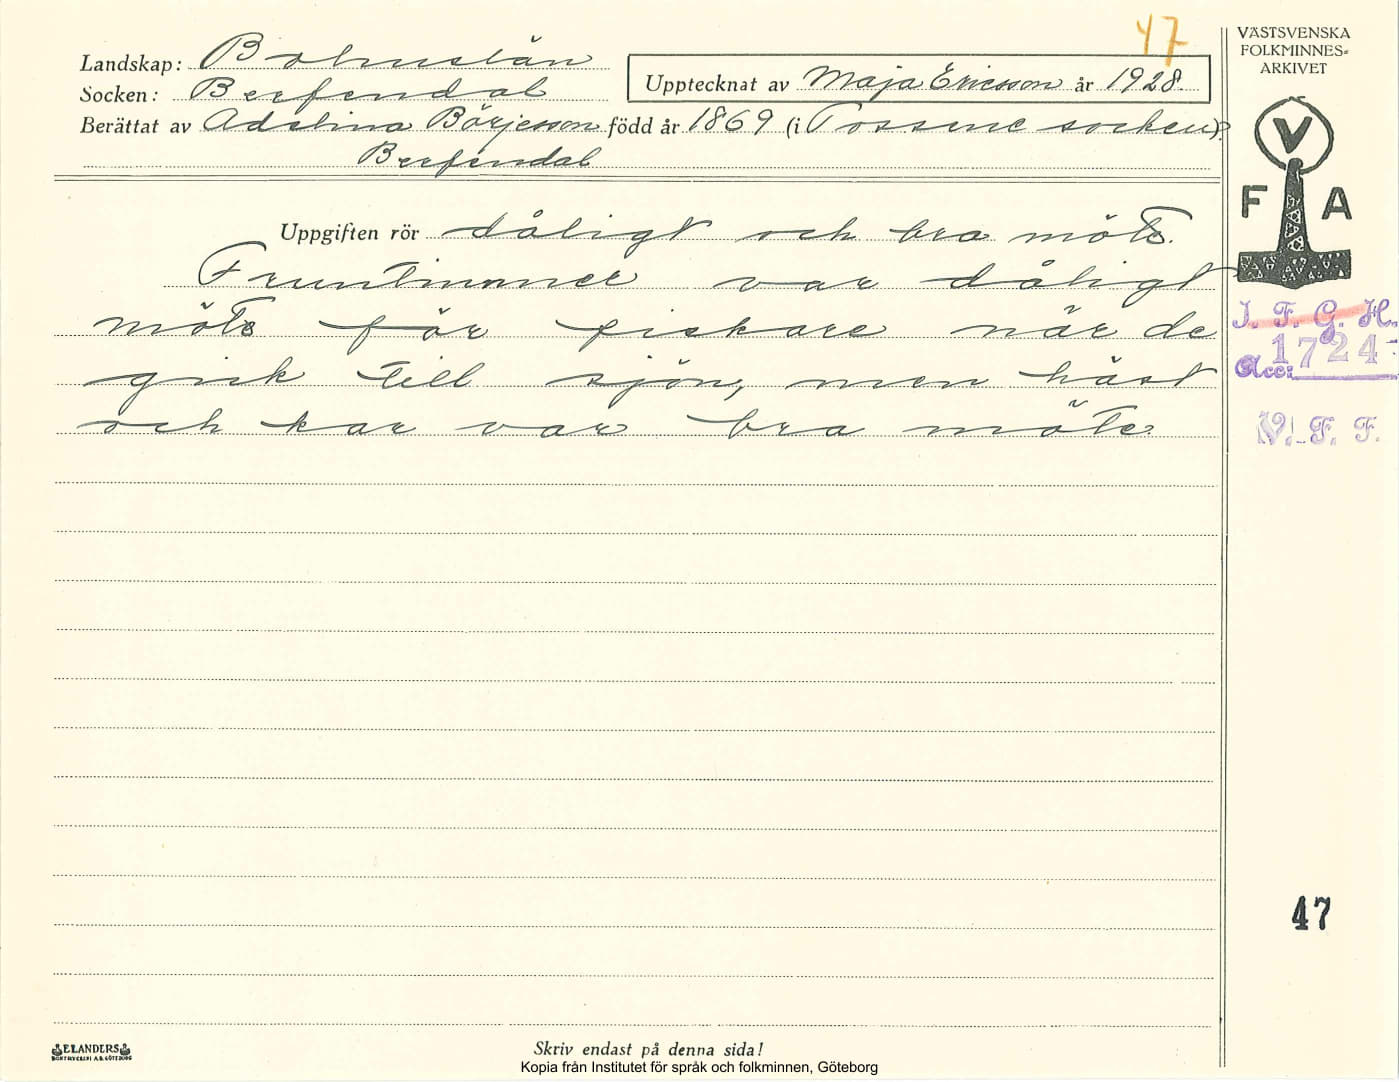 47
VÄSTSVENSKA
FOLKMINNES=
ARKIVET
Landskap: Bohuslän
Socken: Berfendal
Upptecknat av Maja Ericsson år 1928.
Berättat av Adelina Börjesson född år 1869 (i Tossene socken).
Berfendal
V
F A
Uppgiften rör dåligt och bra möte.
Fruntimmer var dåligt
möte för fiskare när de
gick till sjön, men häst
och kar var bra möte.
I. F. G. H.
Acc: 1724
V. F. F.
47
ELANDERS
BOKTRYCKERI A.B. GÖTEBORG
Skriv endast på denna sida!
Kopia från Institutet för språk och folkminnen, Göteborg